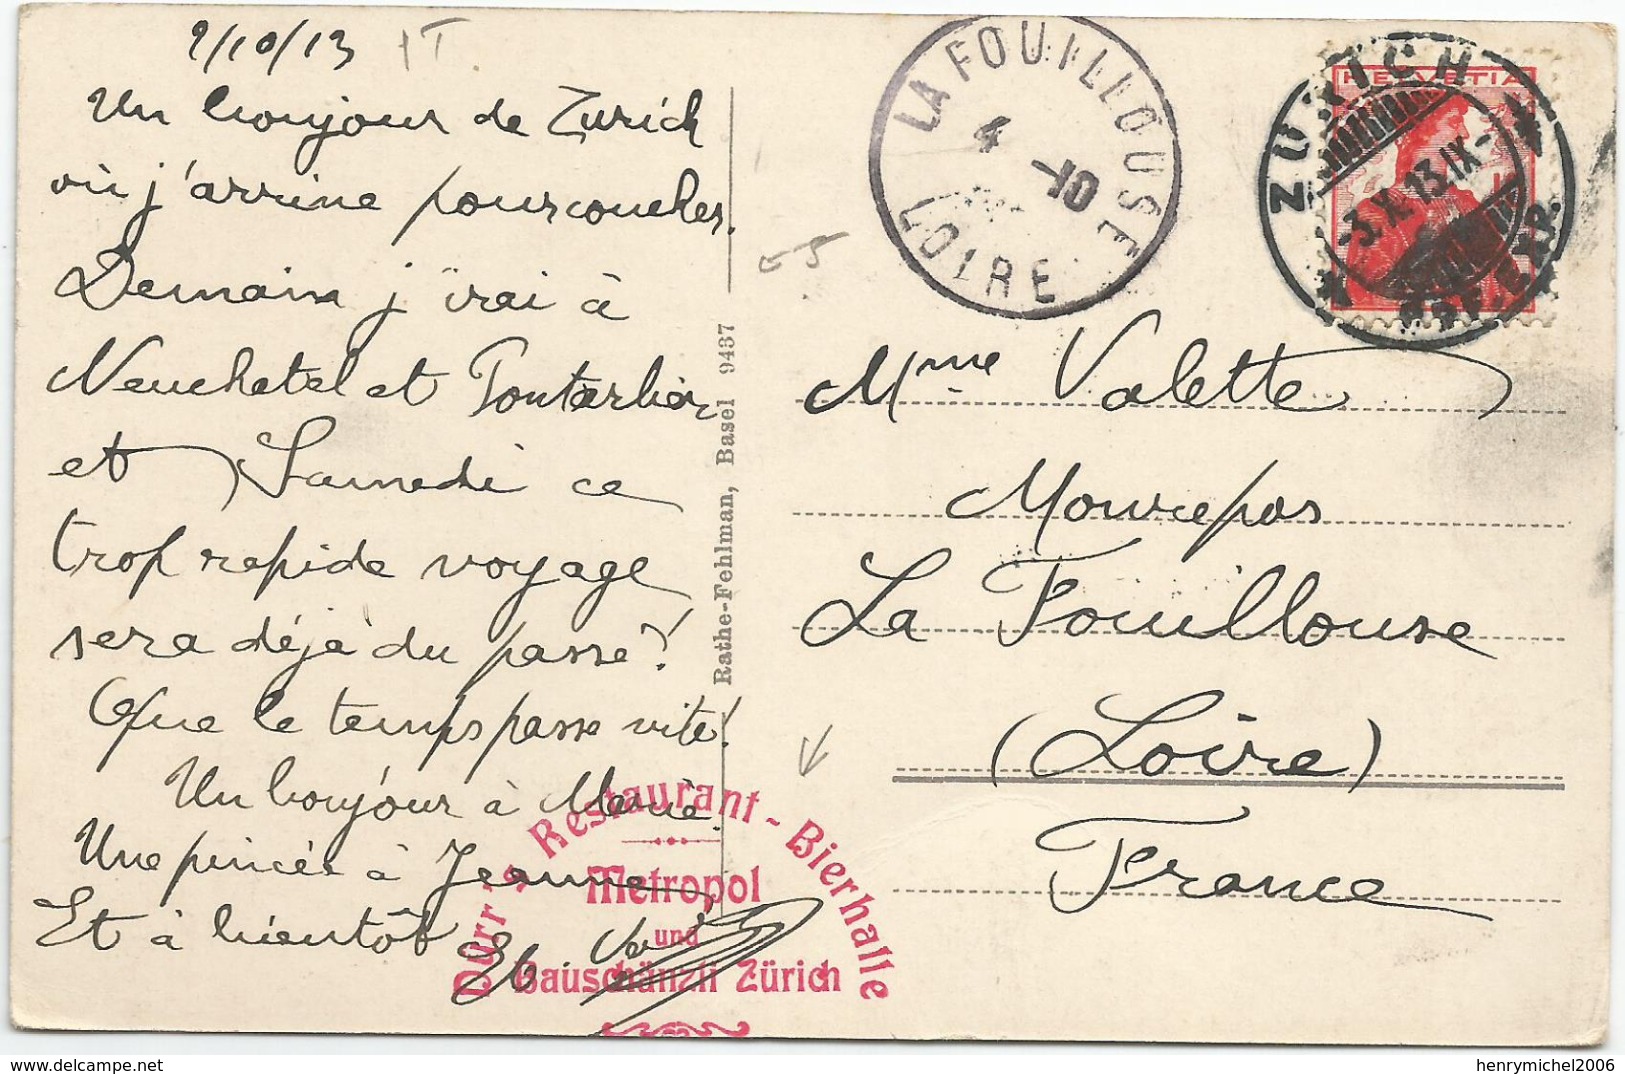 2/10/13
Un bonjour de Zurich
où j'arrive pour coucher.
Demain j'irai à
Neuchatel et Pontarlier
et Samedi ce
trop rapide voyage
sera déjà du passé!
Que le temps passe vite!
Un bonjour à
Une pincée à Jeanne
Et à bientôt
Rathe-Fehlman, Basel 9437
LA FOUILLOUSE
4 -10
LOIRE
HELVETIA
ZÜRICH
-3.X.13.IX-
Mme Valette
Monrepos
La Fouillouse
(Loire)
France
Dürr's Restaurant - Bierhalle
Metropol
und
Bauschänzli Zürich
delcampe.net
henrymichel2006